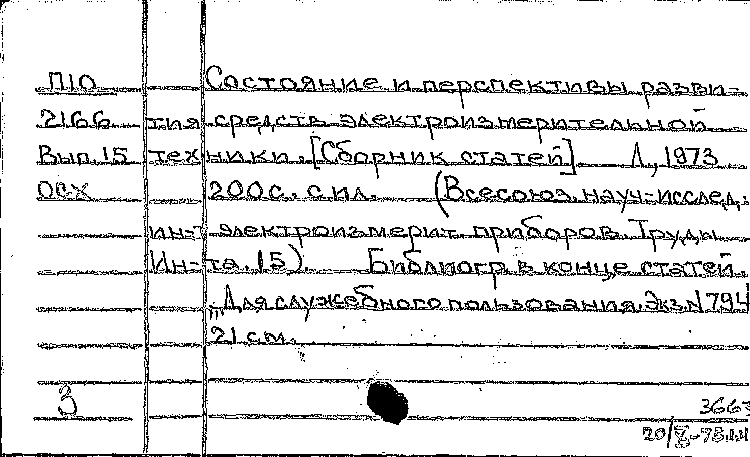 П10 Состояние и перспективы разви-
2166 тия средств электроизмерительной
Вып.15 техники. [Сборник статей]. Л., 1973
ОСХ 200с. с ил. (Всесоюз. науч-исслед.
ин-т электроизмерит. приборов. Труды
Ин-та. 15). Библиогр. в конце статей.
„Для служебного пользования. Экз.N 794
21 см.
3
3663
20/X-75